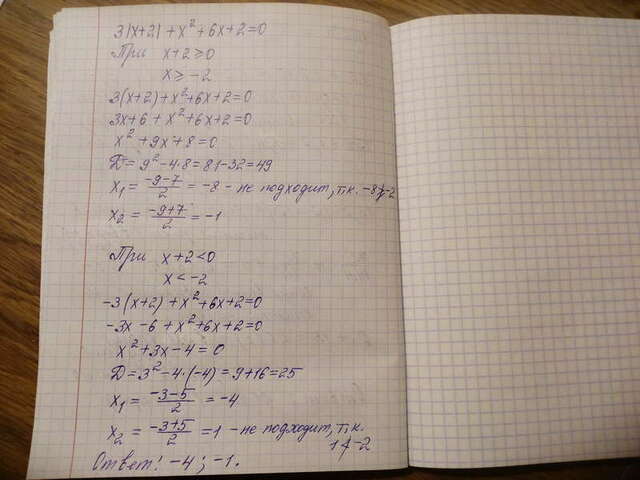 3|x+2| + x² + 6x + 2 = 0
При x+2 ≥ 0
x ≥ -2
3(x+2) + x² + 6x + 2 = 0
3x + 6 + x² + 6x + 2 = 0
x² + 9x + 8 = 0
D = 9² - 4·8 = 81 - 32 = 49
x₁ = (-9-7)/2 = -8 - не подходит, т.к. -8 ≱ -2
x₂ = (-9+7)/2 = -1
При x+2 < 0
x < -2
-3(x+2) + x² + 6x + 2 = 0
-3x - 6 + x² + 6x + 2 = 0
x² + 3x - 4 = 0
D = 3² - 4·(-4) = 9 + 16 = 25
x₁ = (-3-5)/2 = -4
x₂ = (-3+5)/2 = 1 - не подходит, т.к.
1 ≮ -2
Ответ: -4; -1.